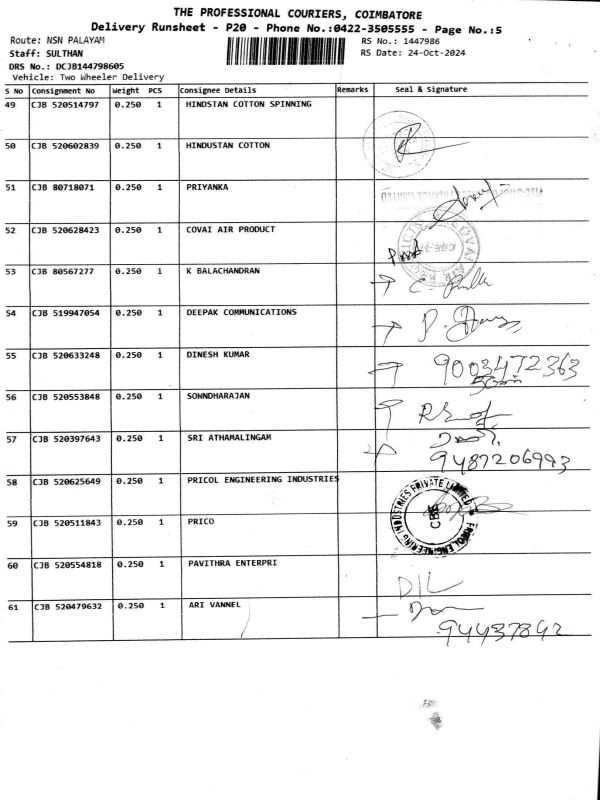 THE PROFESSIONAL COURIERS, COIMBATORE
Delivery Runsheet - P20 - Phone No.:0422-3505555 - Page No.:5
Route: NSN PALAYAM
RS No.: 1447986
Staff: SULTHAN
RS Date: 24-Oct-2024
DRS No.: DCJB144798605
Vehicle: Two Wheeler Delivery
S No Consignment No Weight PCS Consignee Details Remarks Seal & Signature
49 CJB 520514797 0.250 1 HINDSTAN COTTON SPINNING
50 CJB 520602839 0.250 1 HINDUSTAN COTTON
51 CJB 80718071 0.250 1 PRIYANKA
52 CJB 520628423 0.250 1 COVAI AIR PRODUCT
53 CJB 80567277 0.250 1 K BALACHANDRAN
54 CJB 519947054 0.250 1 DEEPAK COMMUNICATIONS
55 CJB 520633248 0.250 1 DINESH KUMAR 9003472363
56 CJB 520553848 0.250 1 SOWNDHARAJAN
57 CJB 520397643 0.250 1 SRI ATHAMALINGAM 9487206993
58 CJB 520625649 0.250 1 PRICOL ENGINEERING INDUSTRIES
PRICOL ENGINEERING INDUSTRIES PRIVATE LIMITED
CBE
59 CJB 520511843 0.250 1 PRICO
60 CJB 520554818 0.250 1 PAVITHRA ENTERPRI D/L
61 CJB 520479632 0.250 1 ARI VANNEL